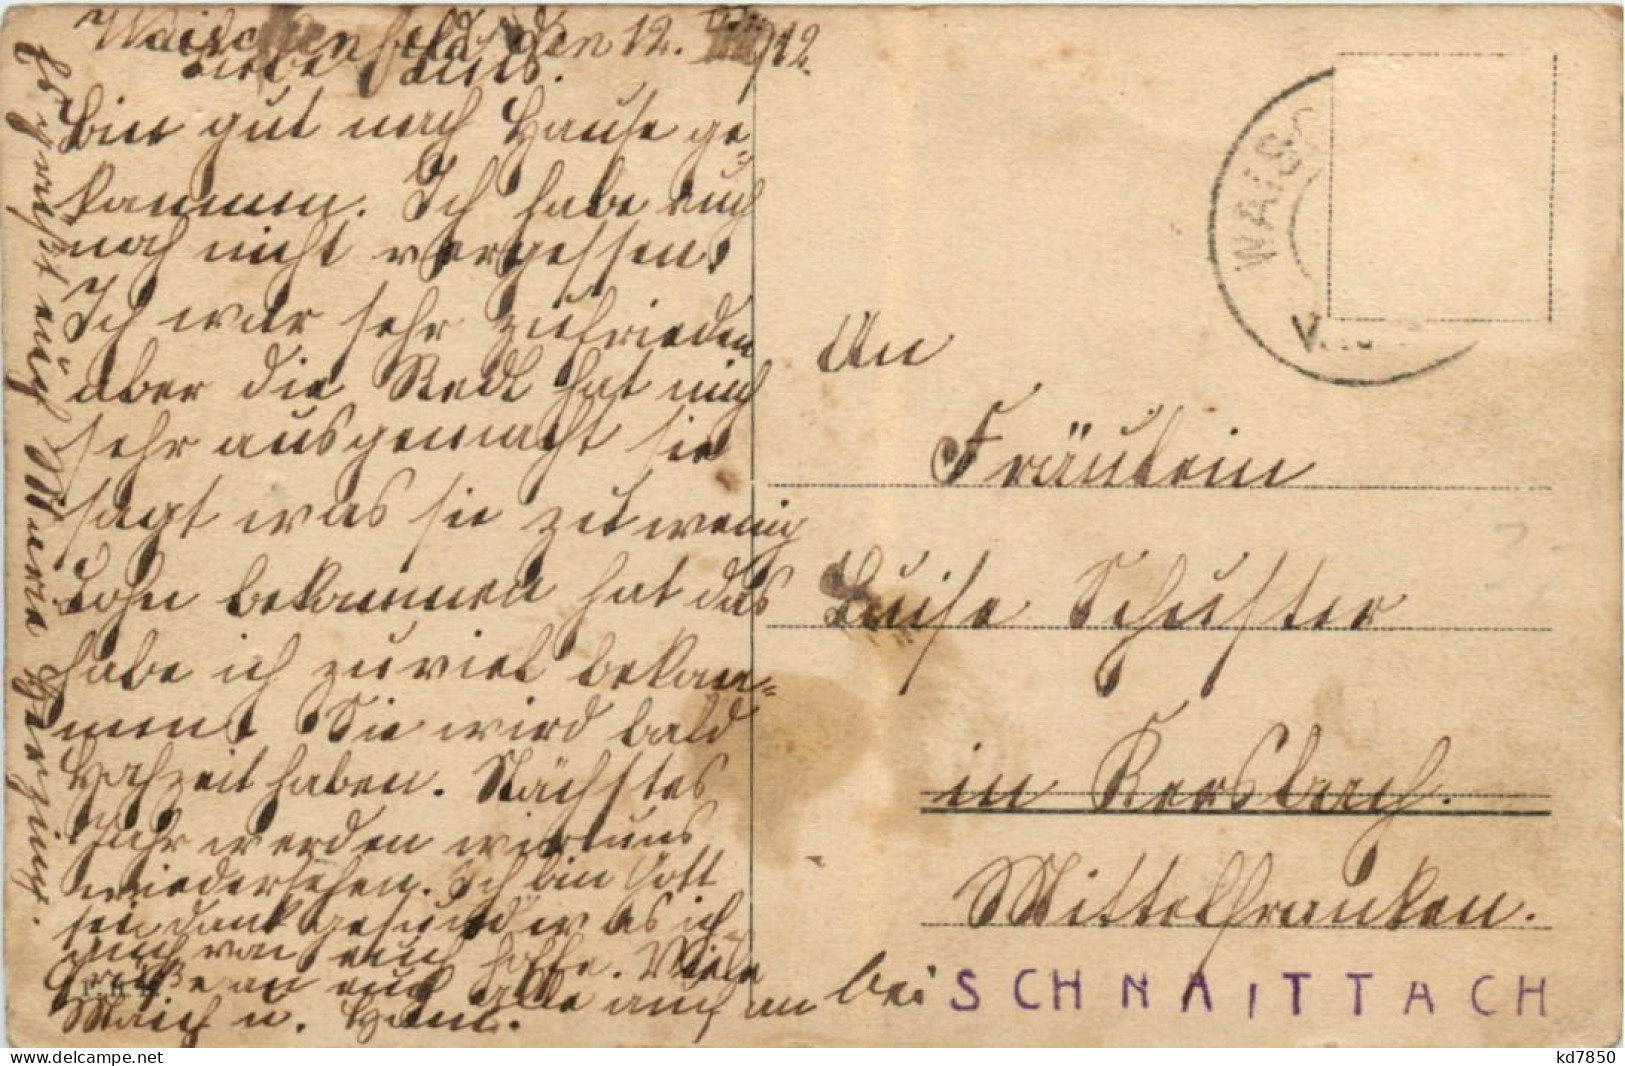 Waischenfeld, den 12. 1912.
Liebe Luis.
Bin gut nach Hause ge-
kommen. Ich habe euch
noch nicht vergessen.
Ich war sehr zufrieden
aber die Redl hat mich
sehr ausgemacht sie
sagt was sie zu wenig
Lohn bekommen hat das
habe ich zu viel bekom-
men. Sie wird bald
Hochzeit haben. Nächstes
Jahr werden wir uns
wiedersehen. Ich bin Gott
sei dank gesund was ich
auch von euch hoffe. Viele
Grüße an euch alle auch an
u.
Es grüßt euch Marie
An
Fräulein
Luise Schuster
in Kersbach.
Mittelfranken.
bei SCHNAITTACH
WAIS
kd7850